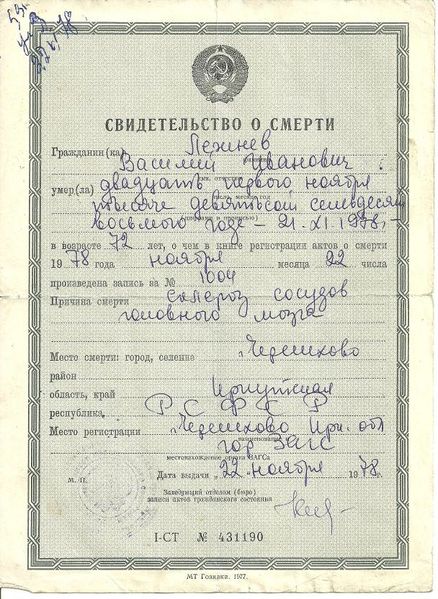 22/XI 78
СВИДЕТЕЛЬСТВО О СМЕРТИ
Гражданин (ка) Лежнев
Василий Иванович
умер(ла) двадцать первого ноября
тысяча девятьсот семьдесят
восьмого года — 21. XI. 1978, -
в возрасте 72 лет, о чем в книге регистрации актов о смерти
1978 года ноября месяца 22 числа
произведена запись за № 1004
Причина смерти Склероз сосудов
головного мозга
Место смерти: город, селение Черемхово
район
область, край Иркутская
республика, РСФСР
Место регистрации Черемхово Ирк. обл
наименование
гор ЗАГС
местонахождение органа ЗАГСа
М. П.
Дата выдачи „22" ноября 1978 г.
Заведующий отделом (бюро)
записи актов гражданского состояния
I-СТ № 431190
МТ Гознака. 1977.